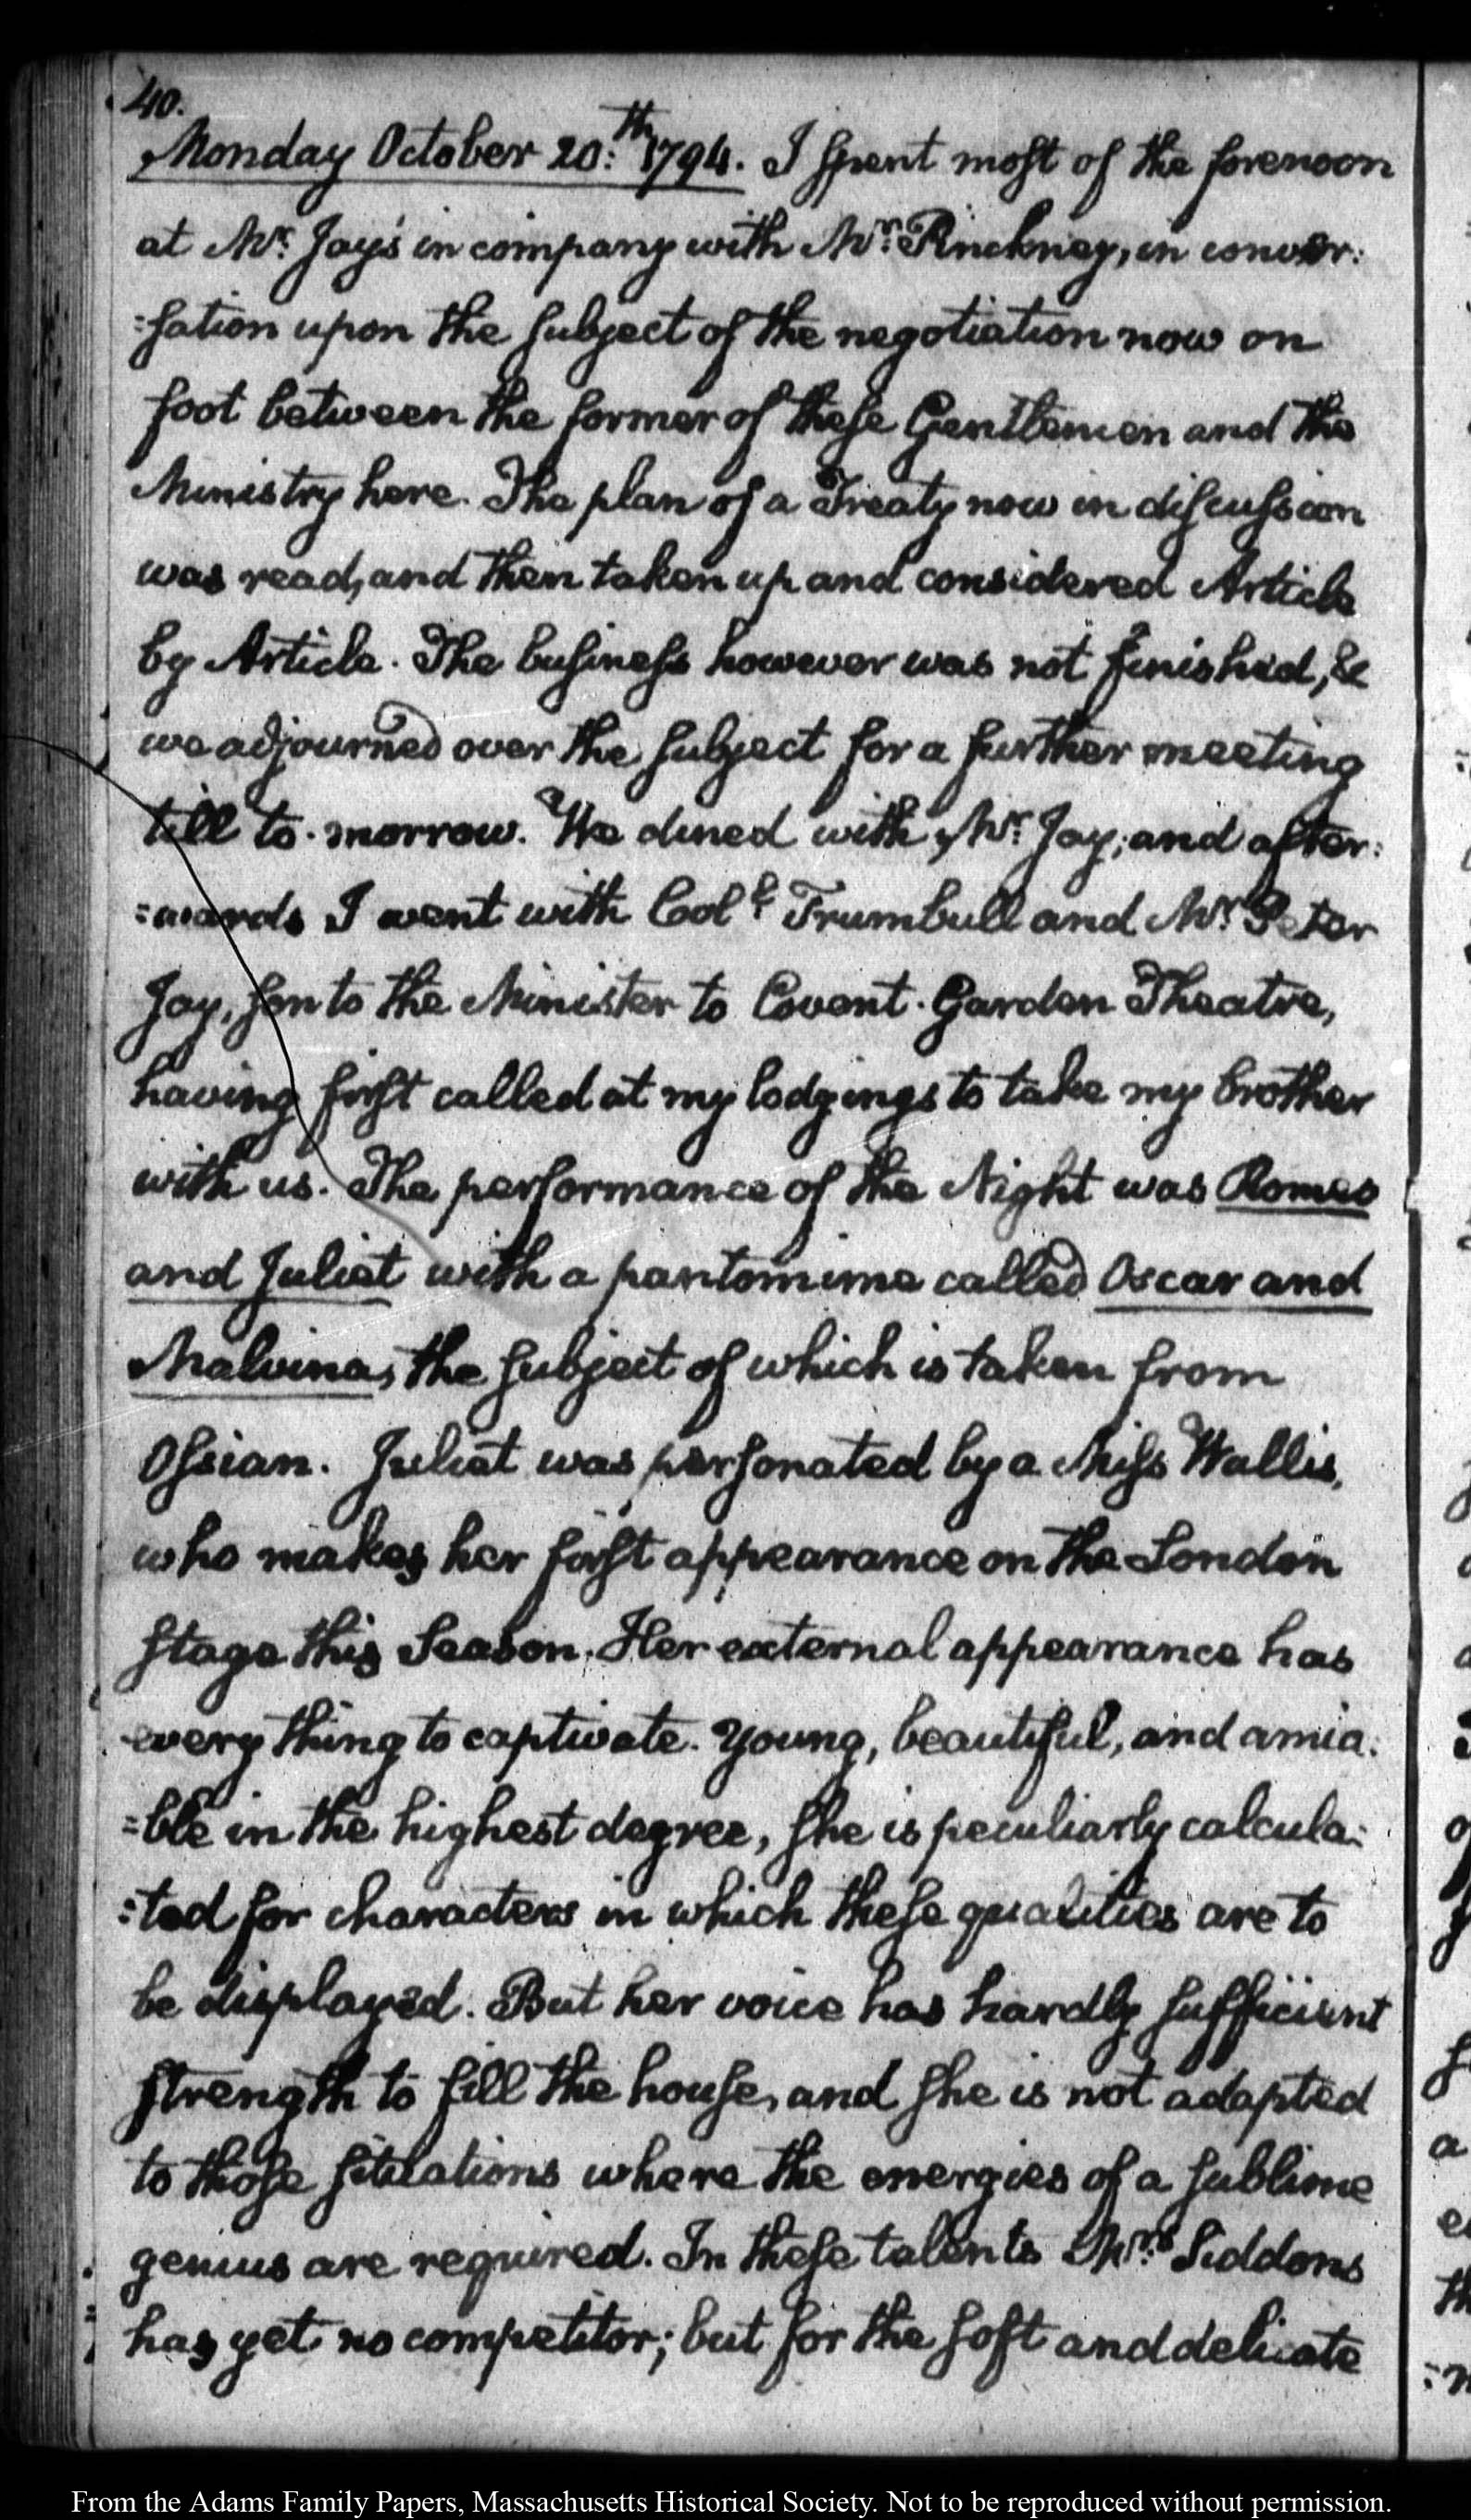 40.
Monday October 20:th 1794. I spent most of the forenoon
at Mr. Jay's in company with Mr: Pinckney, in conver:
:sation upon the subject of the negotiation now on
foot between the former of these Gentlemen and the
Ministry here. The plan of a Treaty now in discussion
was read, and then taken up and considered Article
by Article. The business however was not finished, &
we adjourned over the subject for a further meeting
till to-morrow. We dined with Mr. Jay; and after:
:wards I went with Coll: Trumbull and Mr. Peter
Jay, son to the Minister to Covent-Garden Theatre,
having first called at my lodgings to take my brother
with us. The performance of the Night was Romeo
and Juliet with a pantomime called Oscar and
Malvina, the subject of which is taken from
Ossian. Juliet was personated by a Miss Wallis,
who makes her first appearance on the London
stage this Season. Her external appearance has
every thing to captivate. Young, beautiful, and amia:
=ble in the highest degree, she is peculiarly calcula:
:ted for characters in which these qualities are to
be displayed. But her voice has hardly sufficient
strength to fill the house, and she is not adapted
to those situations where the energies of a sublime
genius are required. In these talents Mrs: Siddons
has yet no competitor; but for the soft and delicate
From the Adams Family Papers, Massachusetts Historical Society. Not to be reproduced without permission.